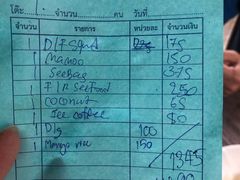 โต๊ะ.......... จำนวน..........คน วันที่..........
จำนวน รายการ หน่วยละ จำนวนเงิน
1 D/F Squid 175
Mamoo 150
Seebas 375
F/R Seefood 250
coconut 65
Ice coffee 80
D/g 100
1 Mango rice 150
1345